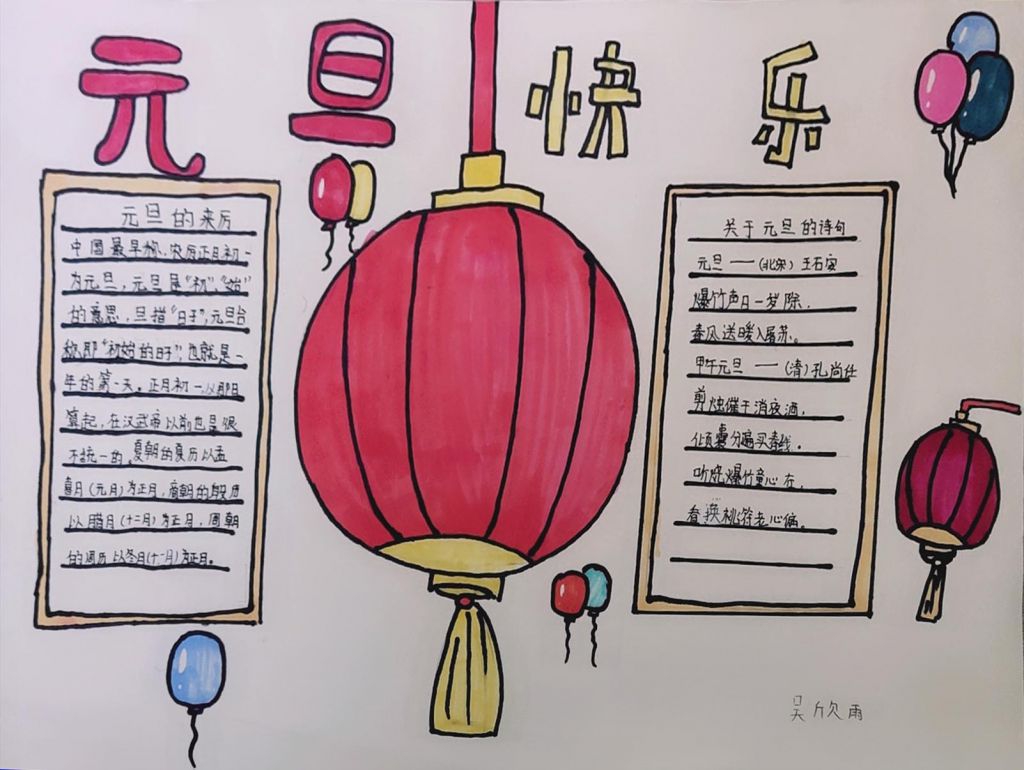 元旦快乐
元旦的来历
中国最早称,农历正月初一
为元旦,元旦是"初","始"
的意思,旦指"日子",元旦合
称即"初始的日子",也就是一
年的第一天。正月初一从即日
算起,在汉武帝以前也是很
不统一的。夏朝的夏历以孟
喜月(元月)为正月,商朝的殷历
以腊月(十二月)为正月,周朝
的周历以冬月(十一月)为正月。
关于元旦的诗句
元旦——(北宋)王石安
爆竹声日一岁除,
春风送暖入屠苏。
甲午元旦——(清)孔尚任
剪烛催干消夜酒,
倾囊分遍买春钱。
听烧爆竹童心在,
看换桃符老心偏。
吴欣雨